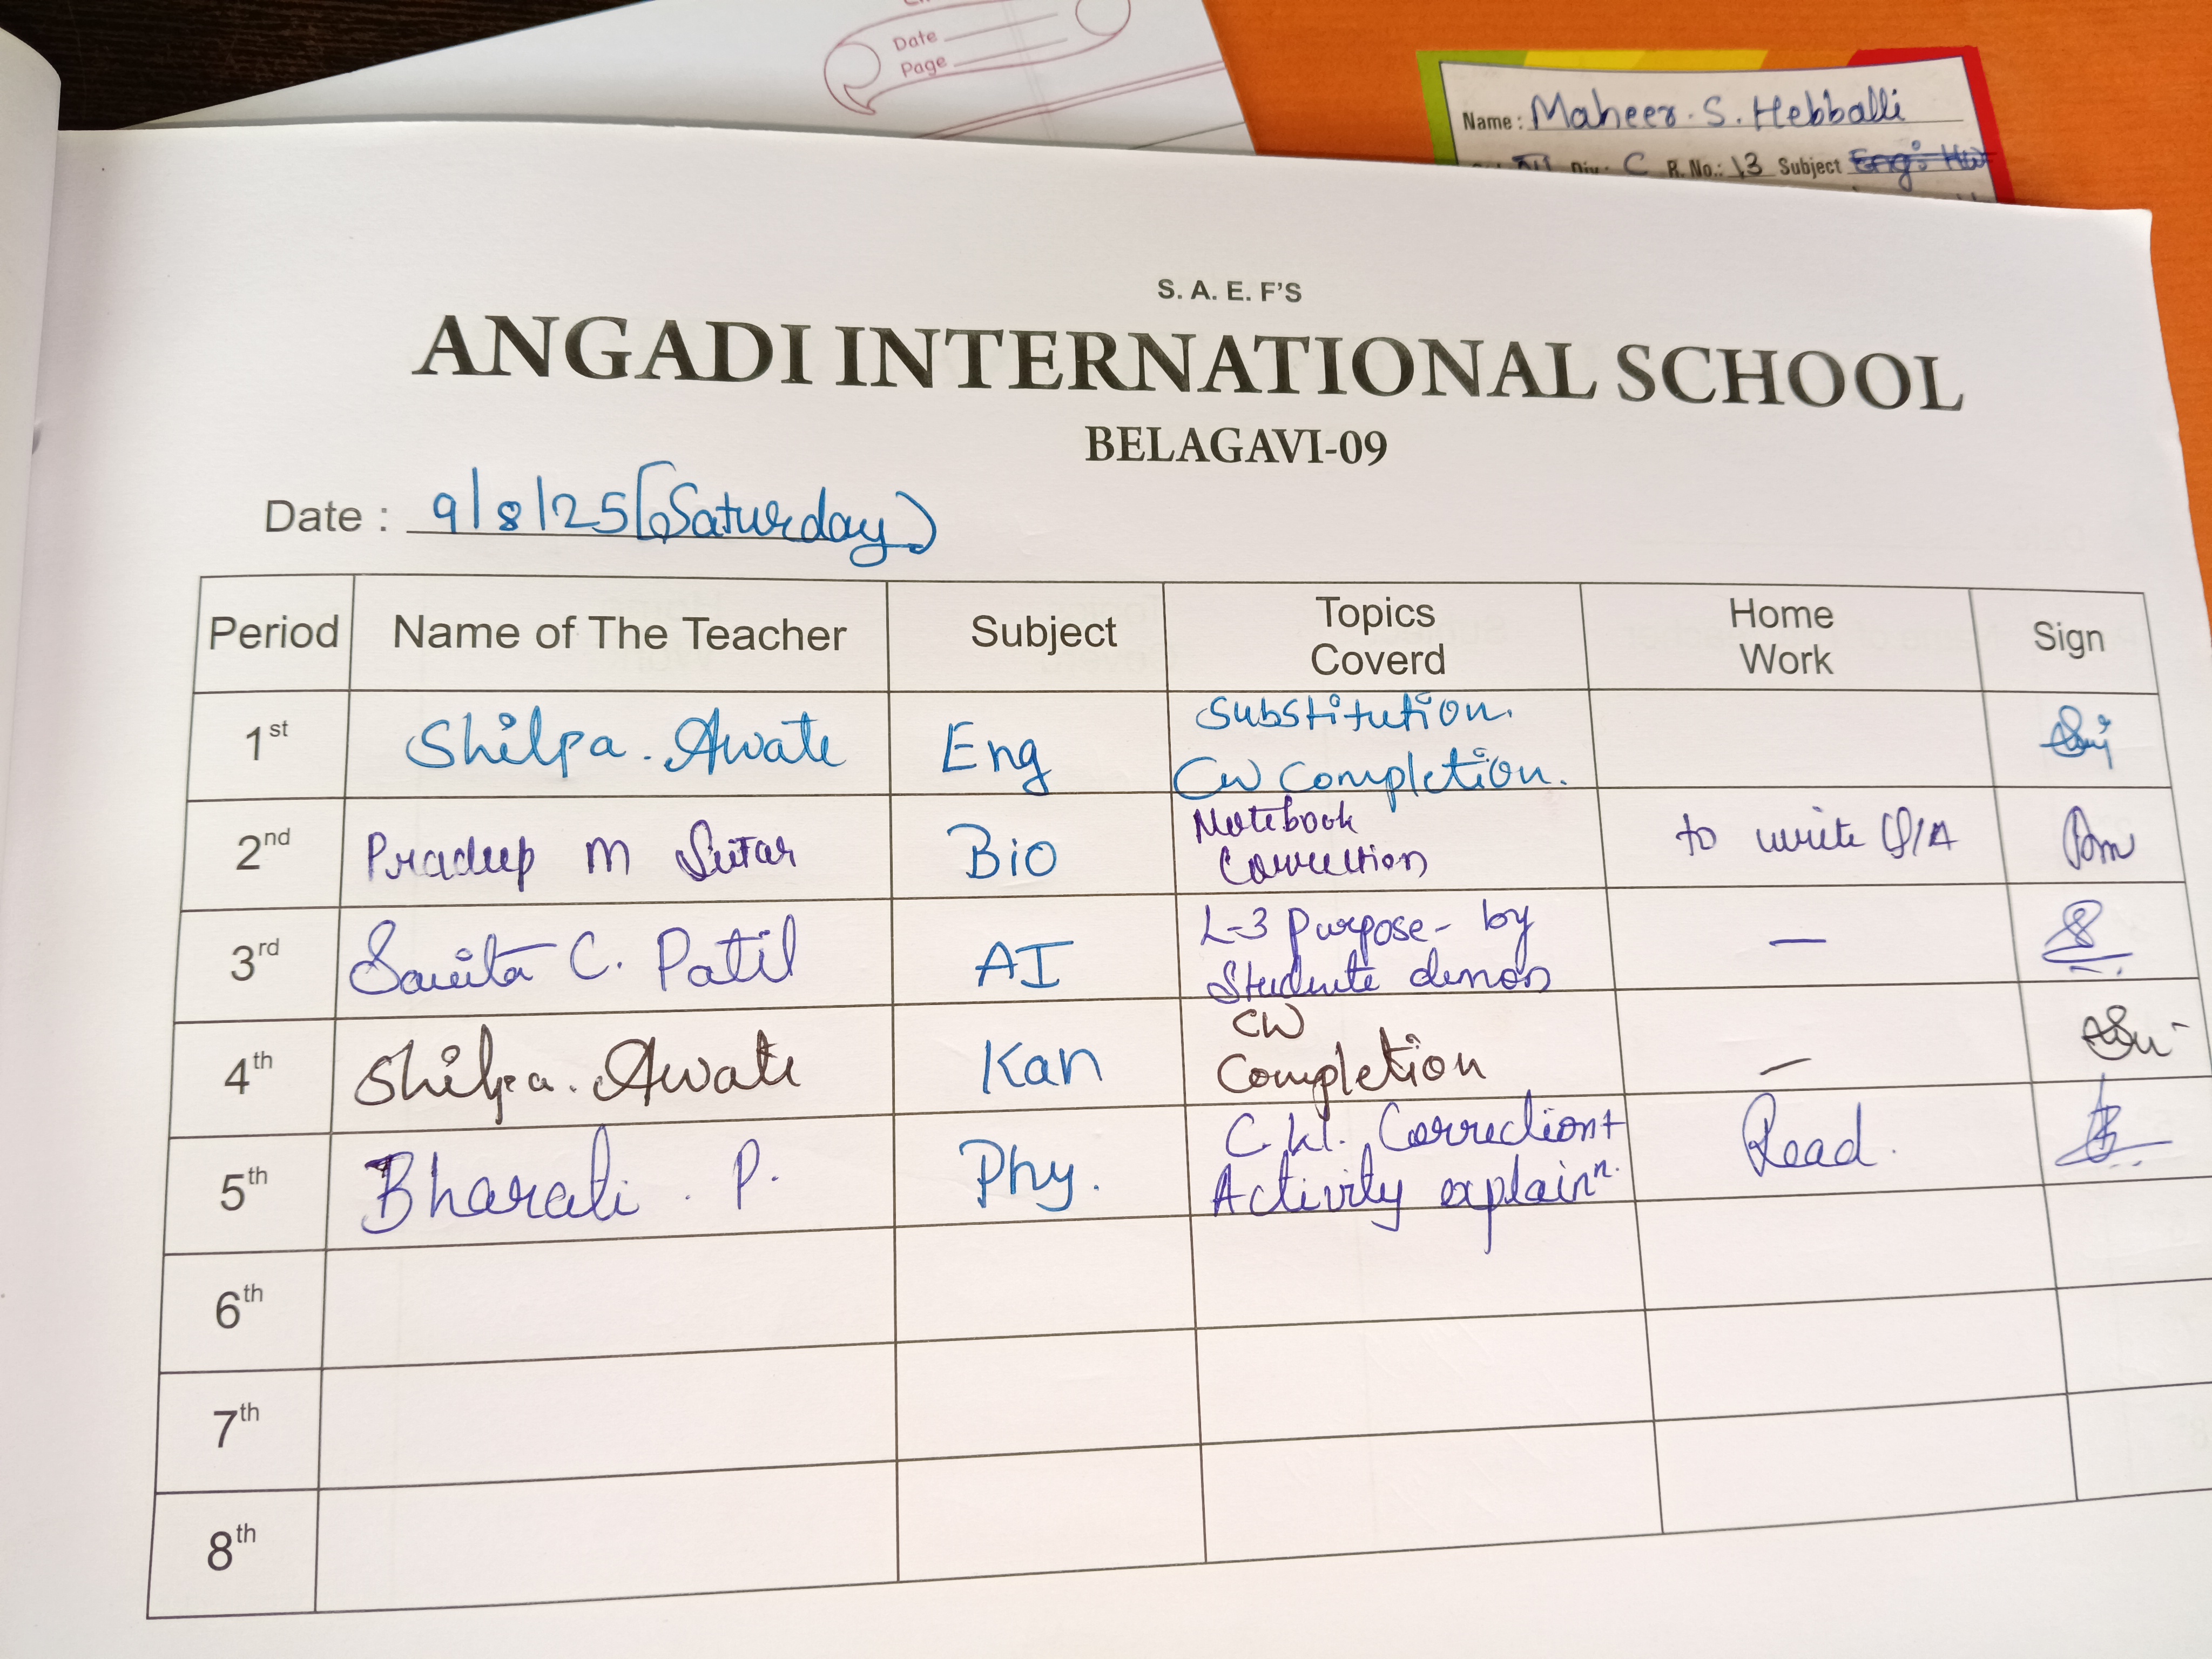 Date
Page
Name : Maheer. S. Hebballi
Div. C R. No.: 13 Subject Eng: HW
S. A. E. F'S
ANGADI INTERNATIONAL SCHOOL
BELAGAVI-09
Date : 9/8/25 [Saturday)
Period Name of The Teacher Subject Topics Coverd Home Work Sign
1st Shilpa. Awate Eng Substitution.
CW Completion.
2nd Pradeep M Sutar Bio Notebook
Correction to write Q/A
3rd Savita C. Patil AI L-3 Purpose- by
Students demos —
4th Shilpa. Awate Kan CW
Completion —
5th Bharati. P. Phy. C.W. Correction+
Activity explainn. Read.
6th
7th
8th